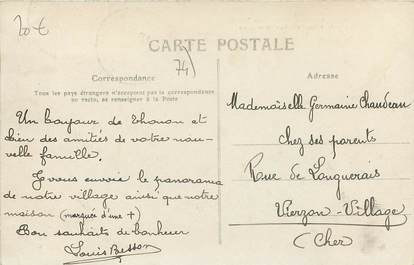 20 €
CARTE POSTALE
74)
Correspondance
Tous les pays étrangers n'acceptent pas la correspondance
au recto, se renseigner à la Poste
Un bonjour de Thouon et
bien des amitiés de votre nou-
velle famille.
Je vous envoie le panorama
de notre village ainsi que notre
maison (marquée d'une +)
Bon souhaits de bonheur
Louis Besson
Adresse
Mademoiselle Germaine Chaudeau
chez ses parents
Rue de Longuerais
Vierzon-Village
(Cher)